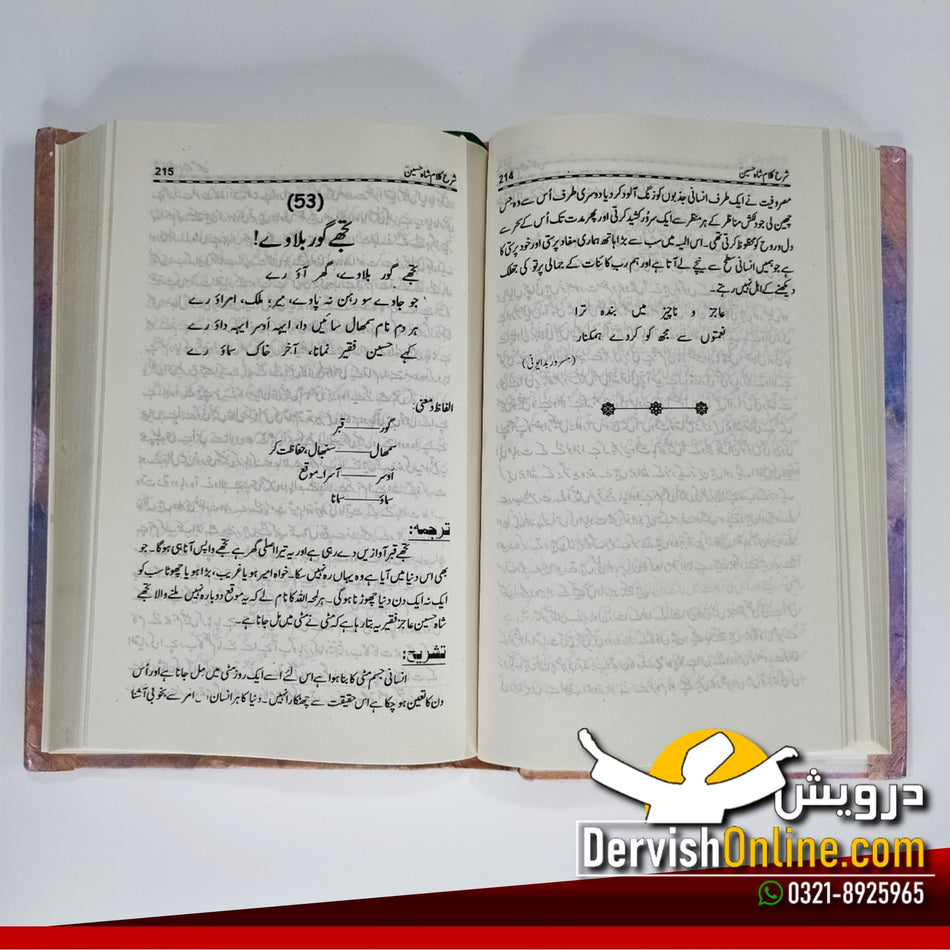 214 شرح کلام شاہ حسین
مصروفیت نے ایک طرف انسانی جذبوں کو زنگ آلود کر دیا دوسری طرف اُس سے وہ حِس
چھین لی جو دلکش مناظر کے ہر منظر سے ایک سرُور کشید کرتی اور پھر مدت تک اُس کے تحت
دل و روح کو محظوظ کرتی تھی۔ اس المیہ میں سب سے بڑا ہاتھ ہماری مفاد پرستی اور خود پرستی کا
ہے جو ہمیں انسانی سطح سے نیچے لے آتا ہے اور ہم رب کائنات کے جمالی پرتو کی جھلک
دیکھنے کے اہل نہیں رہتے۔
عاجز و ناچیز میں بندہ ترا
نعمتوں سے مجھ کو کردے ہمکنار
(مسرور بدایونی)
215 شرح کلام شاہ حسین
(53)
تجھے گور بلاوے!
تجھے گور بلاوے، گھر آؤ رے
جو جاوے سو رہن نہ پاوے، میر، ملک، امراؤ رے
ہر دم نام سمھال سائیں دا، ایہہ اَوسر ایہہ داؤ رے
کہے حسین فقیر نمانا، آخر خاک سماؤ رے
الفاظ و معنی:
گور ــــــ قبر
سمھال ــــــ سنبھال، حفاظت کر
اَوسر ــــــ آسرا۔ موقع
سماؤ ــــــ سمانا
ترجمہ:
تجھے قبر آوازیں دے رہی ہے اور یہ تیرا اصلی گھر ہے تجھے واپس آنا ہی ہوگا۔ جو
بھی اس دنیا میں آیا ہے وہ یہاں رہ نہیں سکا۔ خواہ امیر ہو یا غریب، بڑا ہو یا چھوٹا سب کو
ایک نہ ایک دن دنیا چھوڑنا ہوگی۔ ہر لمحہ اللہ کا نام لے کہ یہ موقع دوبارہ نہیں ملنے والا تجھے
شاہ حسین عاجز فقیر یہ بتا رہا ہے کہ مٹی نے مٹی میں مل جانا ہے۔
تشریح:
انسانی جسم مٹی کا بنا ہوا ہے اس لئے اُسے ایک روز مٹی میں مِل جانا ہے اور اُس
دن کا تعین ہو چکا ہے اس حقیقت سے چھٹکارا نہیں۔ دنیا کا ہر انسان امر سے بخوبی آشنا
درویش
DervishOnline.com
0321-8925965